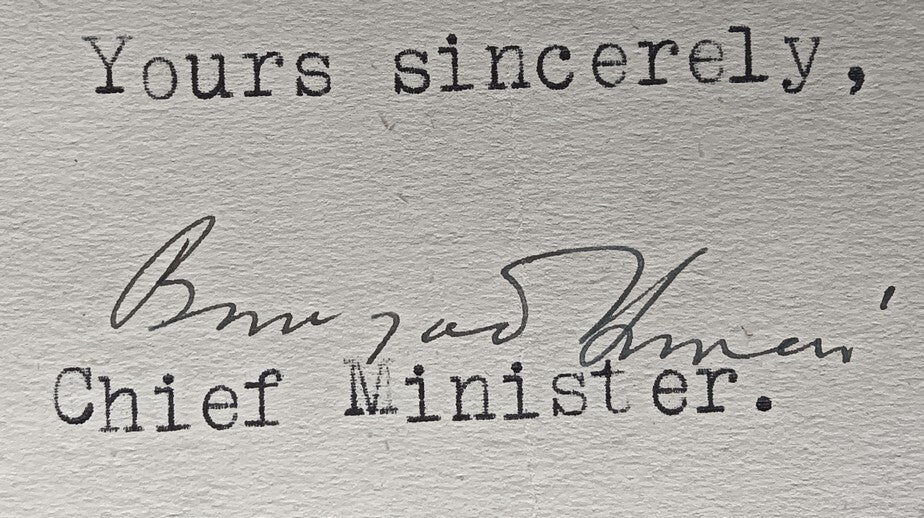 Yours sincerely,
Chief Minister.